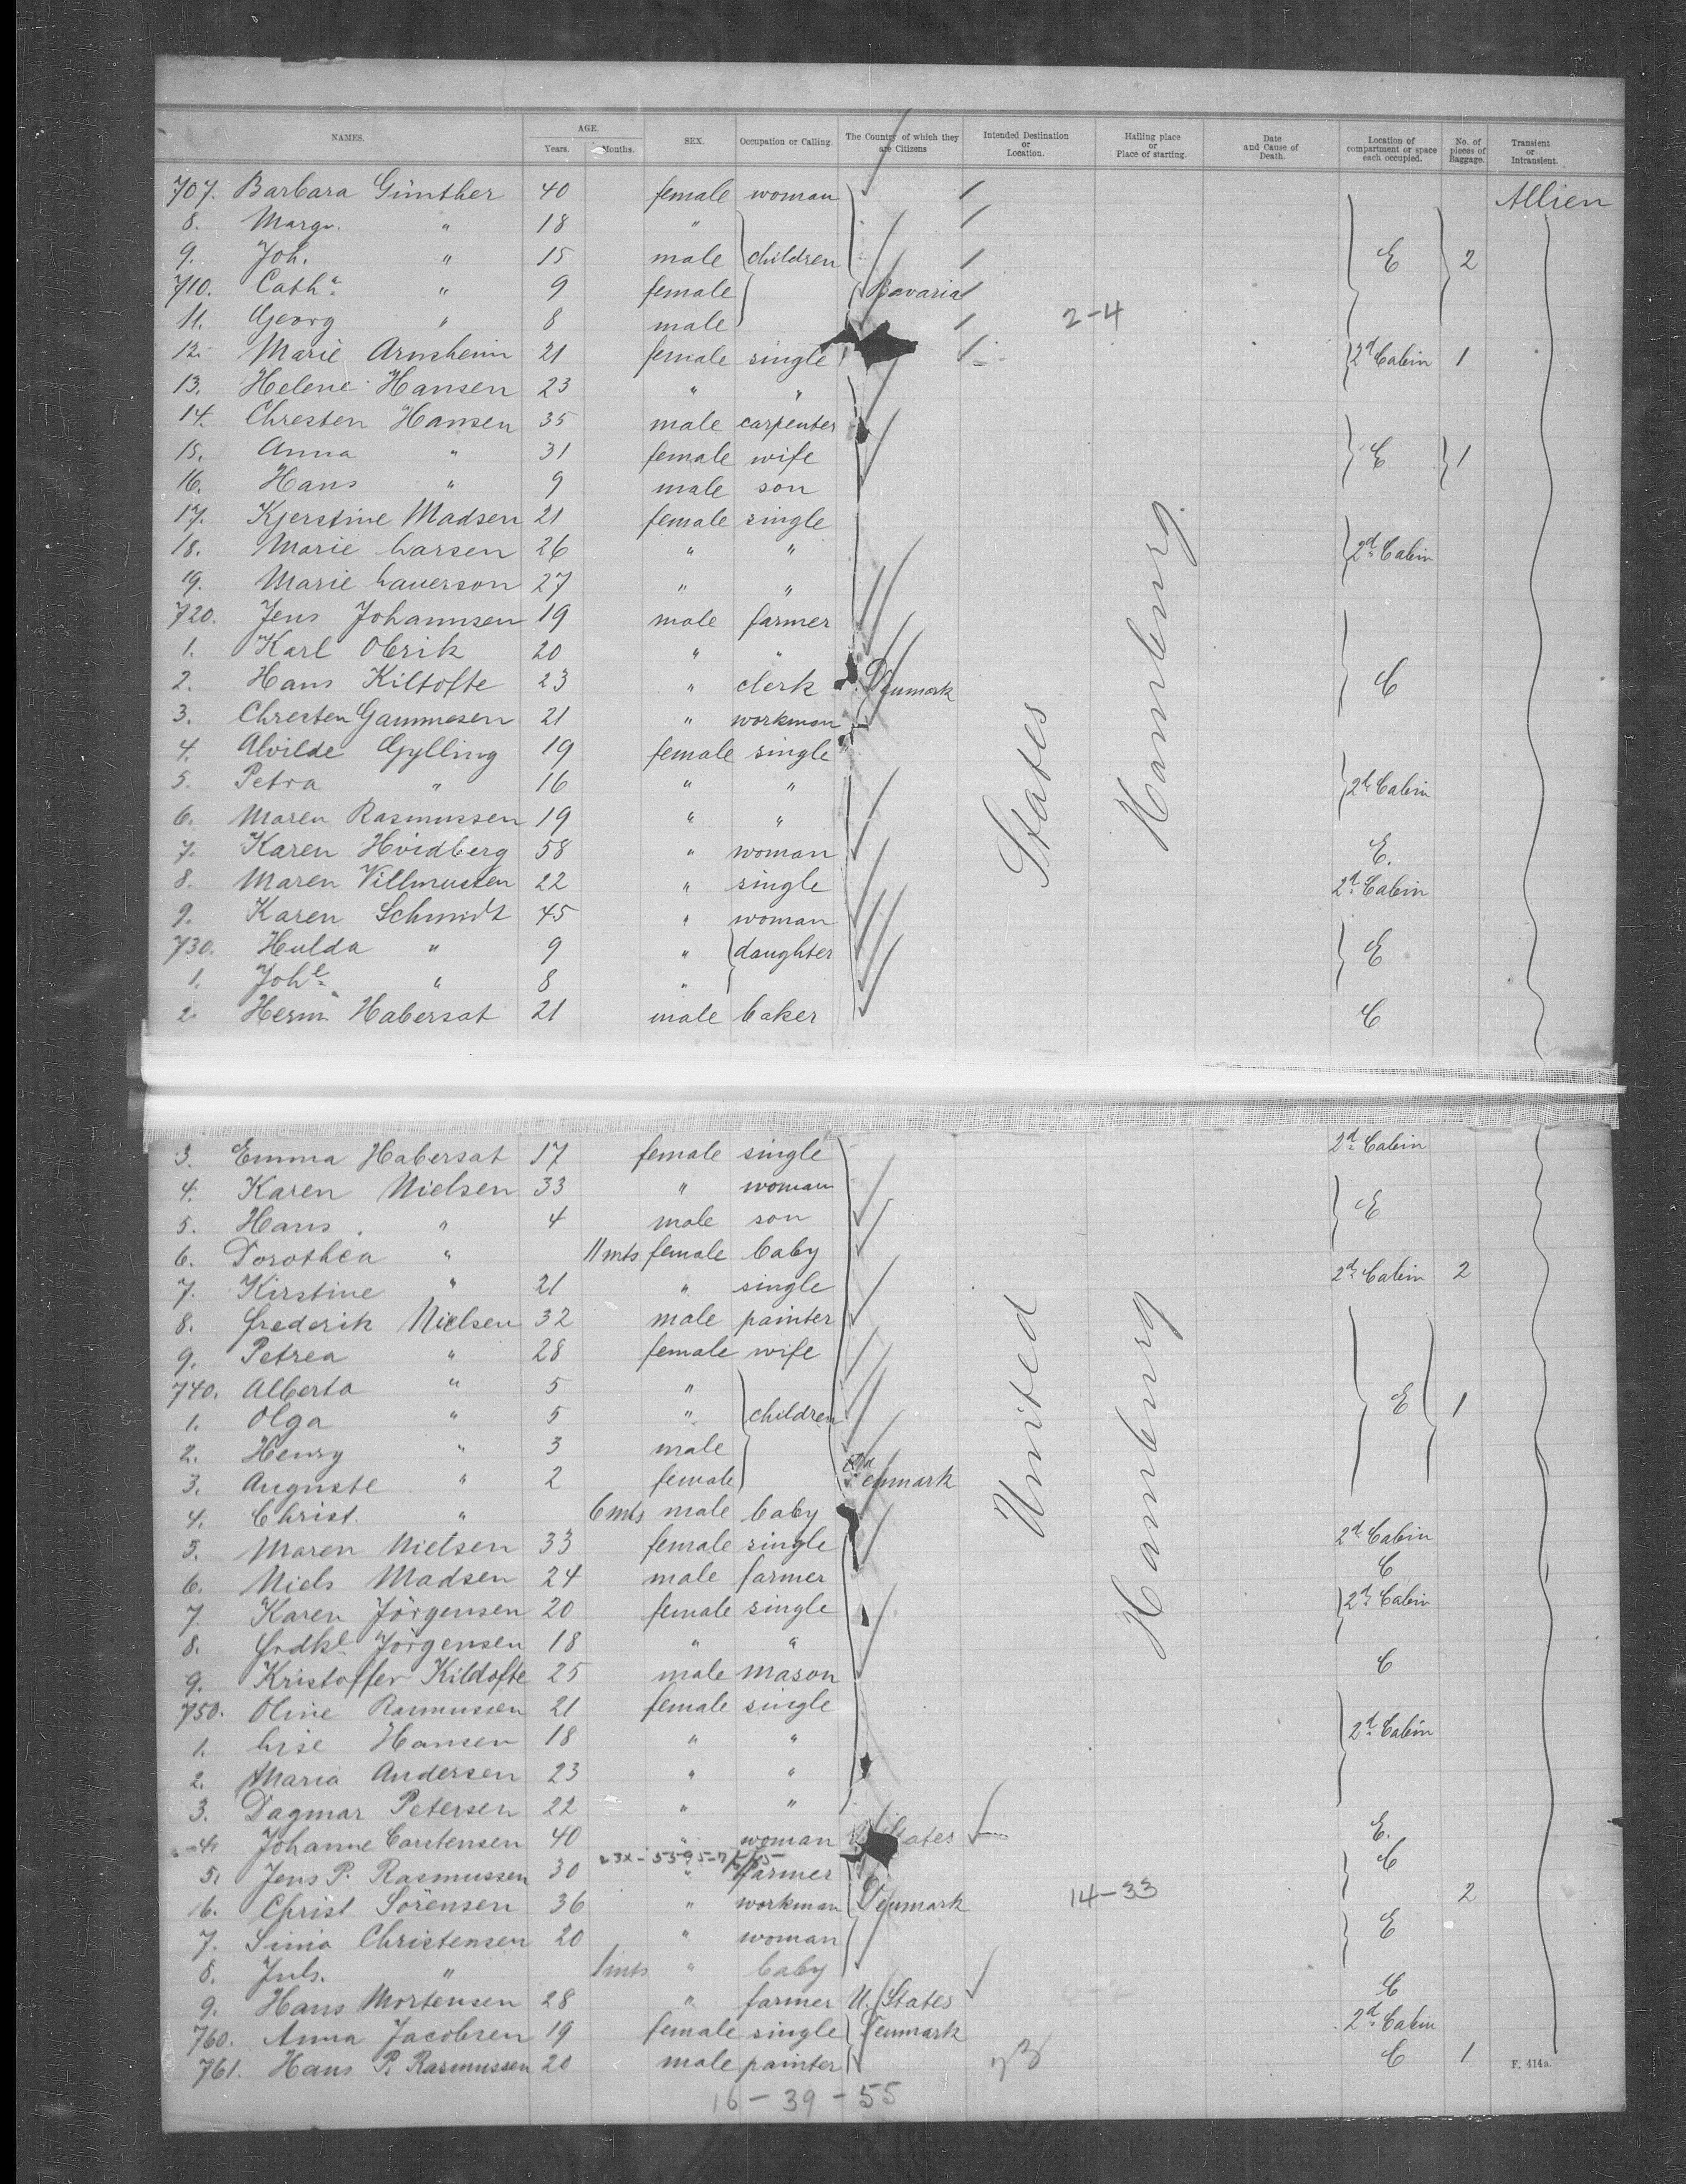 NAMES. AGE. Years. Months. SEX. Occupation or Calling. The Country of which they are Citizens Intended Destination or Location. Hailing place or Place of starting. Date and Cause of Death. Location of compartment or space each occupied. No. of pieces of Baggage. Transient or Intransient.
707. Barbara Günther 40 female woman Allien
8. Margr. " 18 "
9. Joh. " 15 male children E 2
710. Cath. " 9 female Bavaria
11. Georg " 8 male 2-4
12. Marie Arnsheim 21 female single 2d Cabin 1
13. Helene Hansen 23 " "
14. Chresten Hansen 35 male carpenter
15. Anna " 31 female wife E 1
16. Hans " 9 male son
17. Kjerstine Madsen 21 female single
18. Marie Larsen 26 " " 2d Cabin
19. Marie Lauerson 27 " "
720. Jens Johannsen 19 male farmer
1. Karl Obrik 20 " "
2. Hans Kiltofte 23 " clerk Denmark C
3. Chresten Gammesen 21 " workman
4. Alvilde Gylling 19 female single
5. Petra " 16 " " 2d Cabin
6. Maren Rasmussen 19 " "
7. Karen Hvidberg 58 " woman E.
8. Maren Villmusten 22 " single 2d Cabin
9. Karen Schmidt 45 " woman
730. Hulda " 9 " daughter E
1. Johe " 8 "
2. Herm. Habersat 21 male baker C
States Hamburg
3. Emma Habersat 17 female single 2d Cabin
4. Karen Nielsen 33 " woman
5. Hans " 4 male son E
6. Dorothea " 11 mts female baby
7. Kirstine " 21 " single 2d Cabin 2
8. Frederik Nielsen 32 male painter
9. Petrea " 28 female wife
740. Alberta " 5 "
1. Olga " 5 " children E 1
2. Henry " 3 male
3. Auguste " 2 female Denmark
4. Christ. " 6 mts male baby
5. Maren Nielsen 33 female single 2d Cabin
6. Niels Madsen 24 male farmer C
7. Karen Jörgensen 20 female single 2d Cabin
8. Frdke Jörgensen 18 " "
9. Kristoffer Kildofte 25 male mason C
750. Oline Rasmussen 21 female single
1. Lise Hansen 18 " " 2d Cabin
2. Maria Andersen 23 " "
3. Dagmar Petersen 22 " "
4. Johanne Carstensen 40 " woman States E.
5. Jens P. Rasmussen 30 " farmer C
6. Christ Sörensen 36 " workman Denmark 14-33 2
7. Sinio Christensen 20 " woman E
8. Juls. " 1 mts " baby
9. Hans Mortensen 28 " farmer U. States C
760. Anna Jacobsen 19 female single Denmark 2d Cabin
761. Hans P. Rasmussen 20 male painter C 1
United Hamburg
F. 414a.
16-39-55